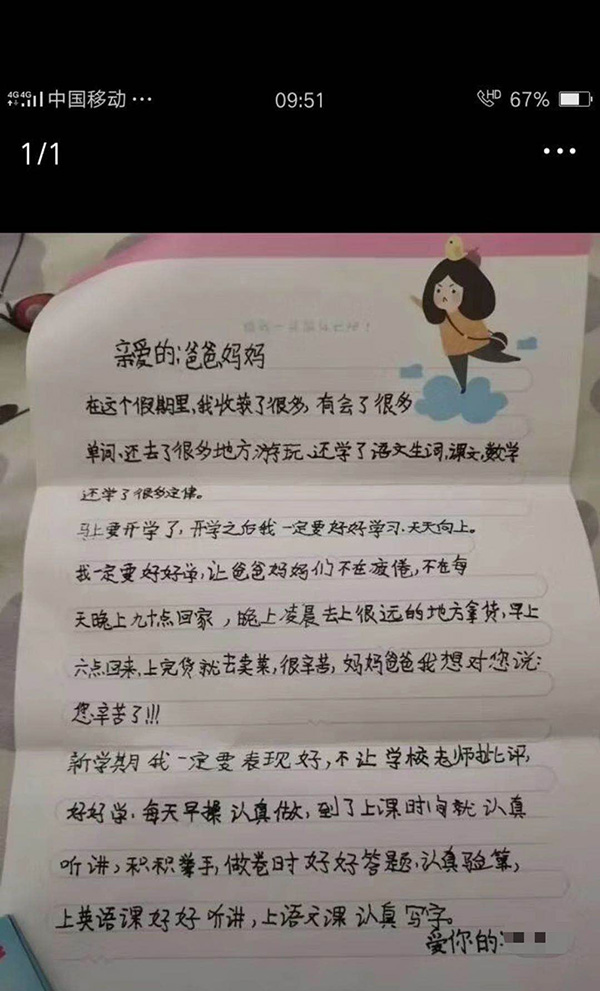 中国移动 ... 09:51 HD 67%
1/1 ...
亲爱的:爸爸妈妈
在这个假期里,我收获了很多,有会了很多
单词、还去了很多地方游玩、还学了语文生词,课文,数学
还学了很多定律。
马上要开学了,开学之后我一定要好好学习、天天向上。
我一定要好好学,让爸爸妈妈们不在疲倦,不在每
天晚上九十点回家,晚上凌晨去上很远的地方拿货,早上
六点回来,上完货就去卖菜,很辛苦,妈妈爸爸我想对您说:
您辛苦了!!!
新学期我一定要表现好,不让学校老师批评,
好好学、每天早操认真做,到了上课时间就认真
听讲,积积举手,做卷时好好答题、认真验算,
上英语课好好听讲,上语文课认真写字。
爱你的: